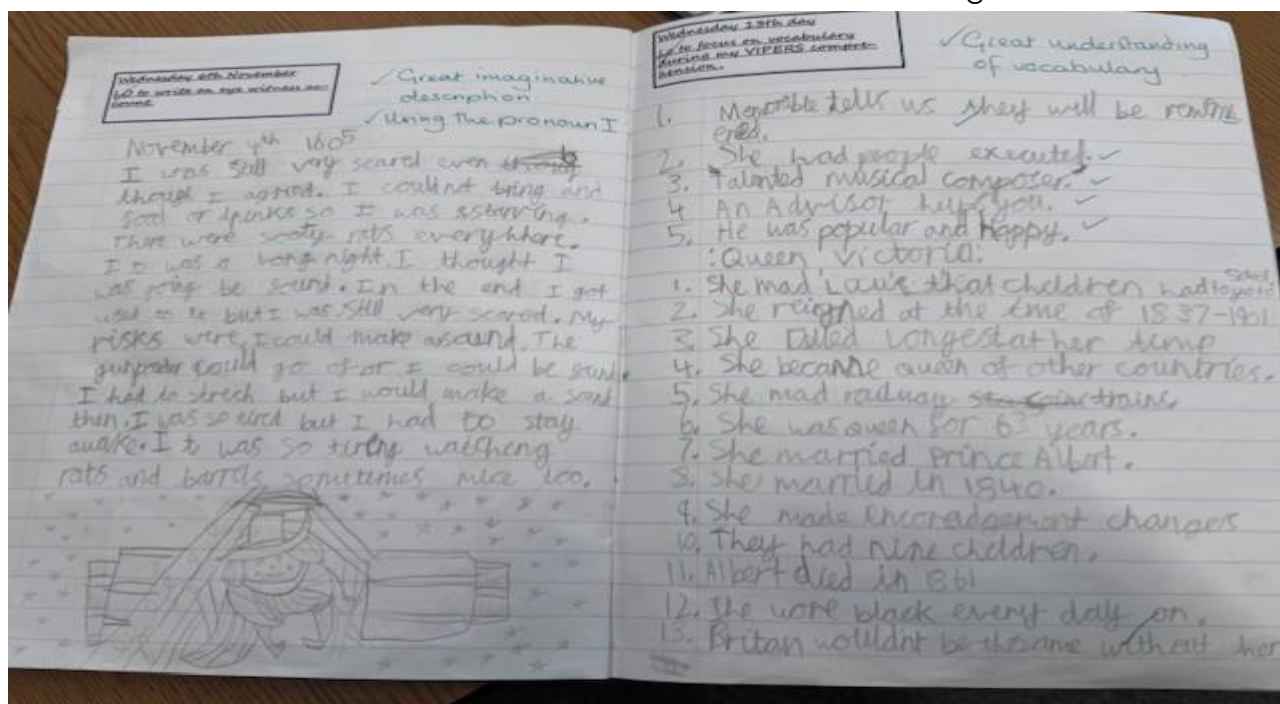 Wednesday 6th November
LO to write an eye witness ac-
count
✓ Great imaginative
description
✓ Using the pronoun I
November 4th 1605
I was still very scared even
though I agreed. I couldnt bring and
food or drinks so I was starving.
There were scoty rats everywhere.
I was a long night. I thought I
was going be found. In the end I got
used to it but I was still very scared. My
risks were, I could make a sound. The
gunpowder could go of or I could be found.
I had to strech but I would make a sound
then. I was so tired but I had to stay
awake. It was so tiring watcheng
rats and barrels, sometimes mice too.
Wednesday 13th day
LO to focus on vocabulary
during my VIPERS compre-
hension.
✓ Great understanding
of vocabulary
1. Memorible tells us they will be remem
ered.
2. She had people executed. ✓
3. Talented musical composer. ✓
4 An Advisor helps you. ✓
5. He was popular and happy. ✓
:Queen Victoria:
1. She mad Laws that cheldren had to go to School
2. She reigned at the time of 1837-1901
3. She Ruled Longest at her time
4. She became queen of other countries.
5. She mad railway trains
6. She was queen for 63 years.
7. She married prince Albert.
8. She married in 1840.
9. She made encoradgement changers
10. They had nine cheldren.
11. Albert died in 1861
12. She wore black every day on.
13. Britan wouldnt be the same without her